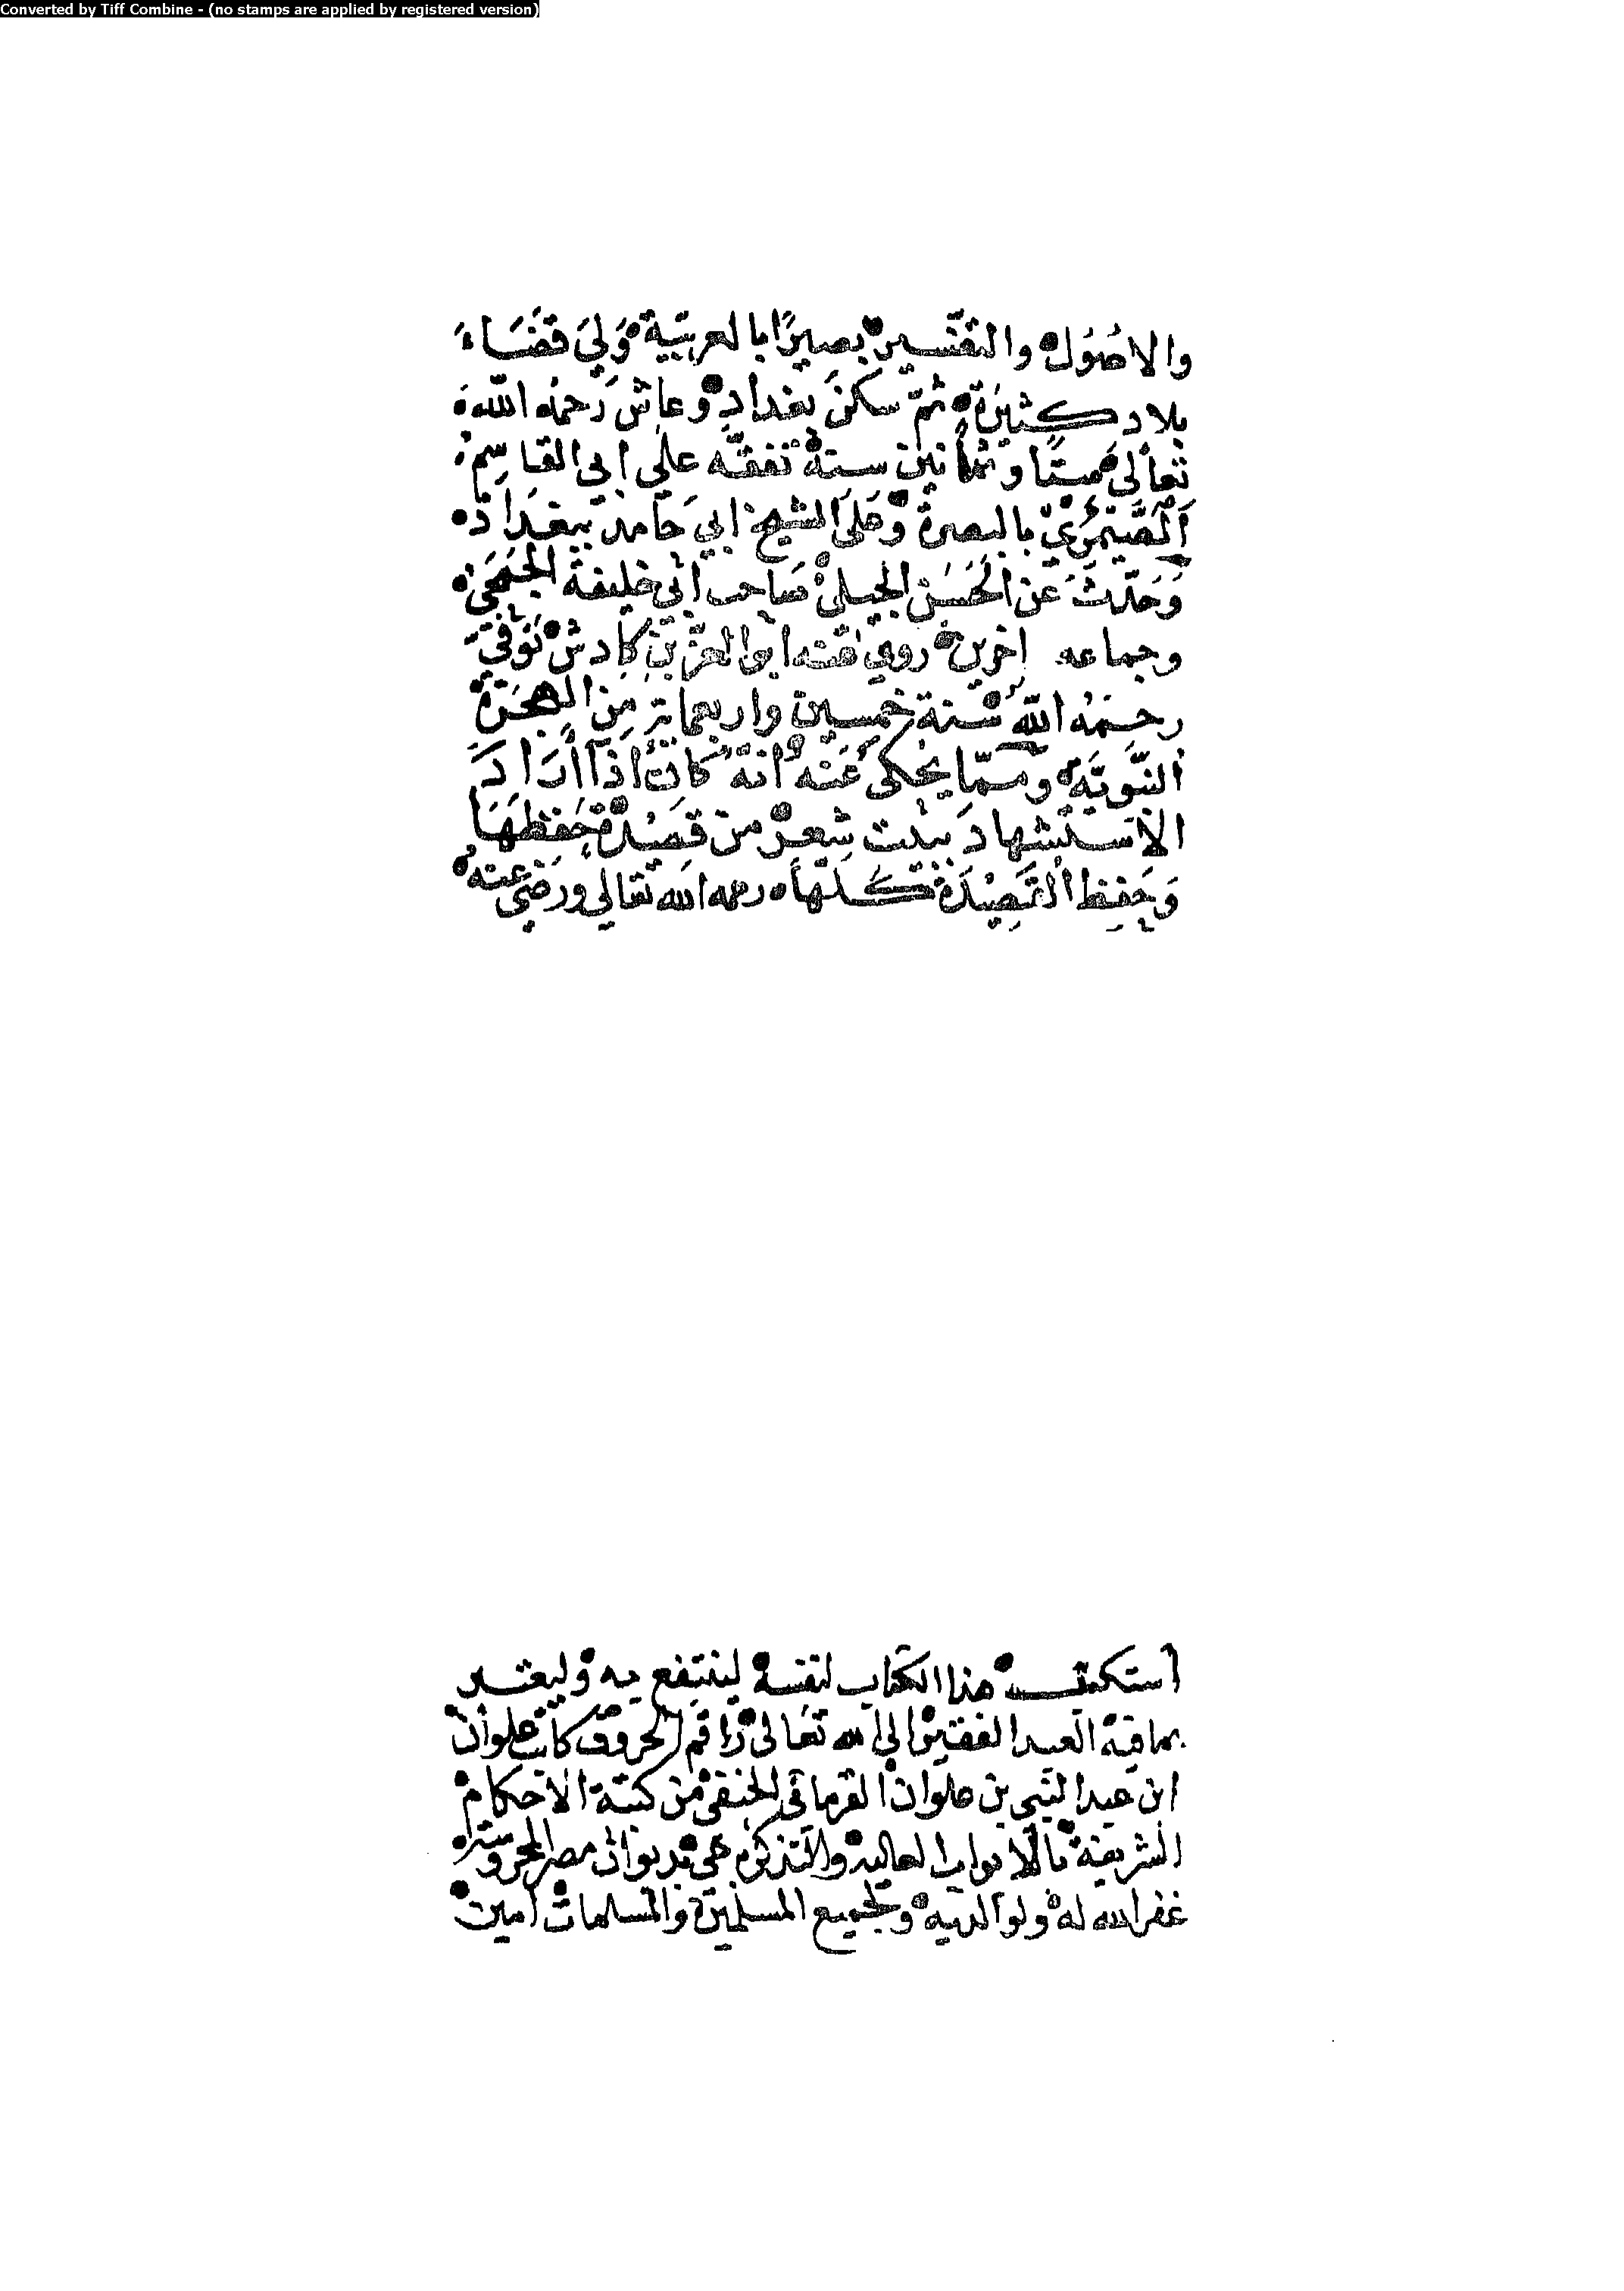 Converted by Tiff Combine - (no stamps are applied by registered version)
والاصُوُل والتفسير بصيرًا بالعربيّة وَليَ قضَاءَ
بلاد كثيرَة ثمّ سكنَ بغداد وعاشَ رَحمهُ اللّه
تعالى ستًا وثمانين سنة تفقّه علي ابي القاسِم
اَلصَّيْمَرُيّ بالبصرة وَعَلىَ الشيخ ابي حَامد ببغدَاد
وَحَدّثَ عَن الحَسَن الجيلي صَاحب ابي خليفة الجُمَحي
وجماعه اخرين روي عنه ابوا العز بن كادش تُوفيَ
رحمَهُ اللّهُ سَنة خمسين واربعماية مِن الهجرَة
النبّويَّة وممّا يُحكى عَنه انهُ كان اذا ارَادَ
الاسَتشهادَ ببيت شِعرٍ من قصِيْدة حَفظهَا
وَحَفِظ القصِيْدَة كلهاَ رحمه الله تعالي ورضي عنه
استكتبه هذا الكتاب لنفسه لينتفع به وليعتبر
بما فيه العبد الفقير الى الله تعَالى رَاقم الحروف كاتبه علوان
ابن عبد النبي بن علوان القرماني الحنفي من كتبة الاحكام
الشريفة بالابواب العاليه والتذكره جي بديوان مصر المحروسة
غفر الله له ولوالديه ولجميع المسلمين والمسلمات امين